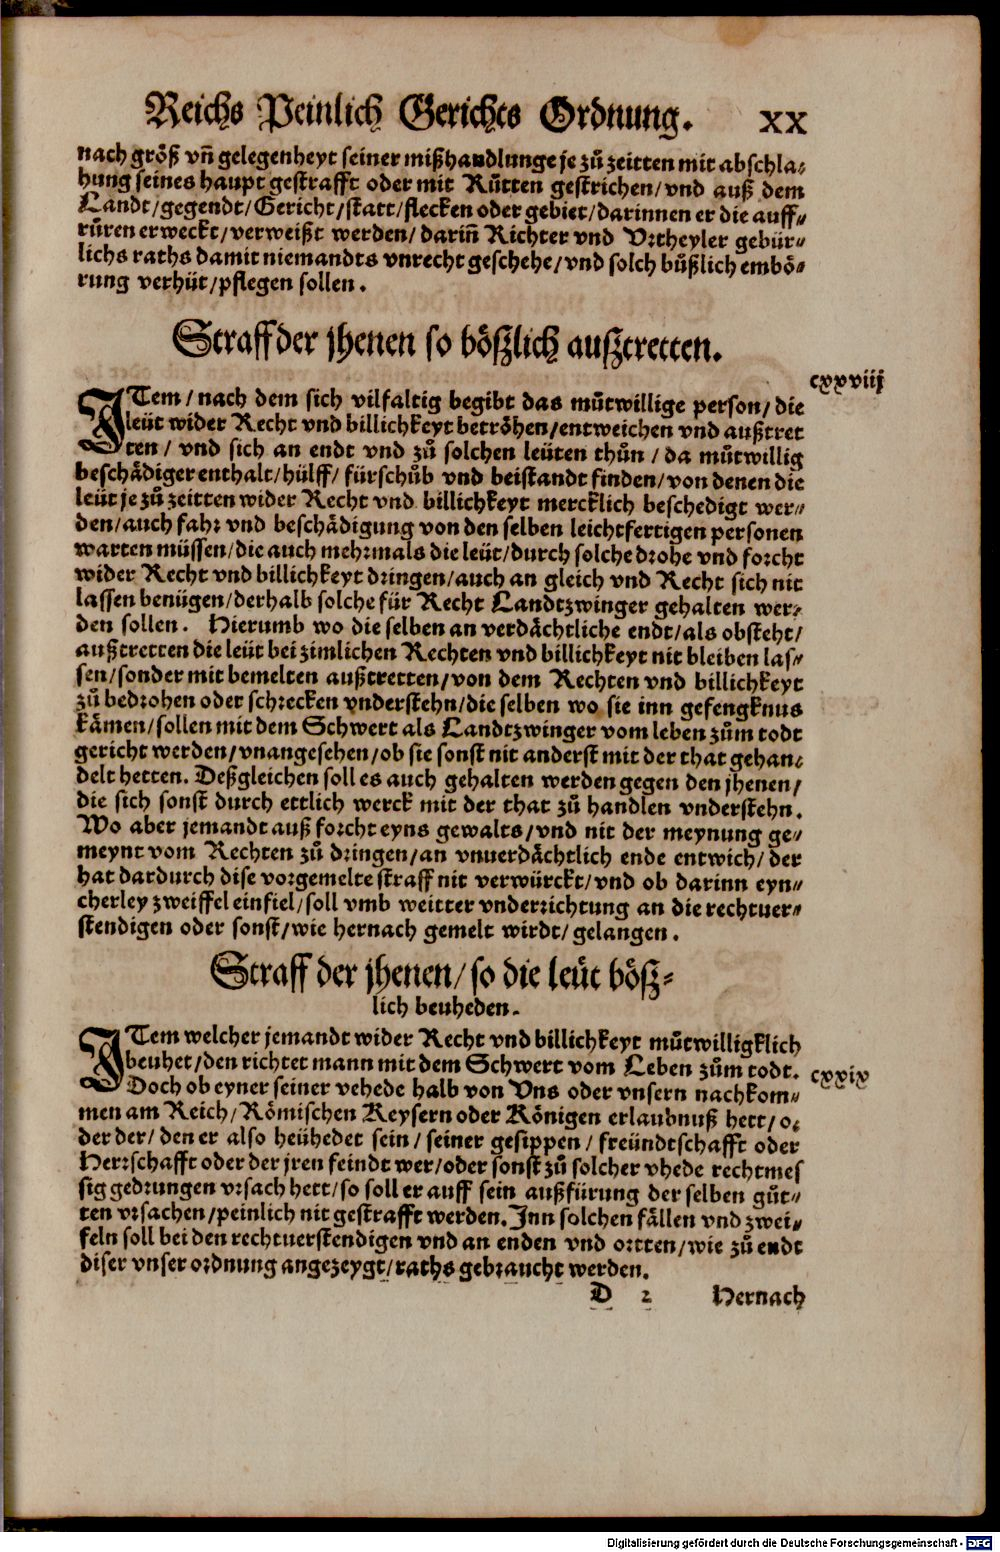 Reichs Peinlich Gerichts Ordnung. XX
nach größ vñ gelegenheyt seiner mißhandlunge je zů zeitten mit abschla⸗
hung seines haupt gestrafft oder mit Růtten gestrichen/vnd auß dem
Landt/gegendt/Gericht/statt/flecken oder gebiet/darinnen er die auff⸗
růren erweckt/verweißt werden/darin̄ Richter vnd Vrtheyler gebür⸗
lichs raths damit niemandts vnrecht geschehe/vnd solch bůßlich embö⸗
rung verhüt/pflegen sollen.
Straff der jhenen so bößlich außtretten.
cxxviij
ITem/nach dem sich vilfaltig begibt das můtwillige person/die
leüt wider Recht vnd billichkeyt betröhen/entweichen vnd außtret
ten/ vnd sich an endt vnd zů solchen leüten thůn/da můtwillig
beschädiger enthalt/hülff/fürschůb vnd beistandt finden/von denen die
leüt je zů zeitten wider Recht vnd billichkeyt mercklich beschedigt wer⸗
den/auch fahr vnd beschädigung von den selben leichtfertigen personen
warten müssen/die auch mehrmals die leüt/durch solche drohe vnd forcht
wider Recht vnd billichkeyt dringen/auch an gleich vnd Recht sich nit
lassen benügen/derhalb solche für Recht Landtzwinger gehalten wer⸗
den sollen. Hierumb wo die selben an verdächtliche endt/als obsteht/
außtretten die leüt bei zimlichen Rechten vnd billichkeyt nit bleiben las⸗
sen/sonder mit bemelten außtretten/von dem Rechten vnd billichkeyt
zů bedrohen oder schrecken vnderstehn/die selben wo sie inn gefengknus
kämen/sollen mit dem Schwert als Landtzwinger vom leben zům todt
gericht werden/vnangesehen/ob sie sonst nit anderst mit der that gehan⸗
delt hetten. Deßgleichen soll es auch gehalten werden gegen den jhenen/
die sich sonst durch ettlich werck mit der that zů handlen vnderstehn.
Wo aber jemandt auß forcht eyns gewalts/vnd nit der meynung ge⸗
meynt vom Rechten zů dringen/an vnuerdächtlich ende entwich/der
hat dardurch dise vorgemelte straff nit verwürckt/vnd ob darinn eyn⸗
cherley zweiffel einfiel/soll vmb weitter vnderrichtung an die rechtuer⸗
stendigen oder sonst/wie hernach gemelt wirdt/gelangen.
Straff der jhenen/so die leüt böß⸗
lich beuheden.
ITem welcher jemandt wider Recht vnd billichkeyt můtwilligklich
beuhet/den richtet mann mit dem Schwert vom Leben zům todt.
cxxix
Doch ob eyner seiner vehede halb von Vns oder vnsern nachkom⸗
men am Reich/Römischen Keysern oder Königen erlaubnuß hett/o⸗
der der/den er also beühedet sein/seiner gesippen/freündtschafft oder
Herrschafft oder der jren feindt wer/oder sonst zů solcher vhede rechtmes
sig gedrungen vrsach hett/so soll er auff sein außfürung der selben gůt⸗
ten vrsachen/peinlich nit gestrafft werden. Inn solchen fällen vnd zwei⸗
feln soll bei den rechtuerstendigen vnd an enden vnd ortten/wie zů endt
diser vnser ordnung angezeygt/raths gebraucht werden.
D 2 Hernach
Digitalisierung gefördert durch die Deutsche Forschungsgemeinschaft - DFG